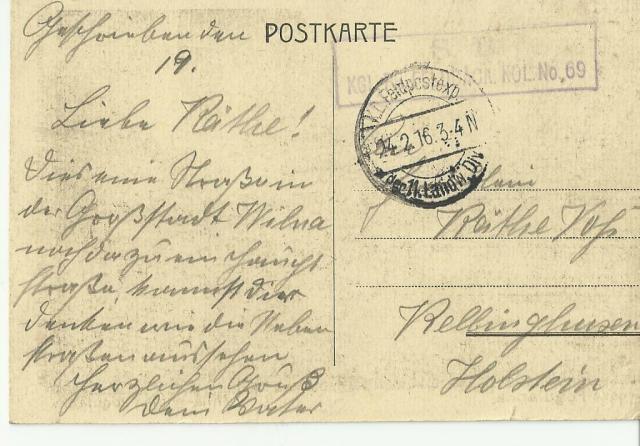 POSTKARTE
Geschrieben den
19.
Liebe Käthe!
Dies eine Straße in
der Großstadt Wilna
noch dazu ein Haupt
straße, kannst dir
denken wie die Neben
straßen aussehen
Herzlichen Gruß
Dein Vater
KGL. KOL. No. 69
Feldpostexp.
24.2.16. 3-4 N
der 11. Landw. Div.
Käthe Voß
Kellinghusen
Holstein